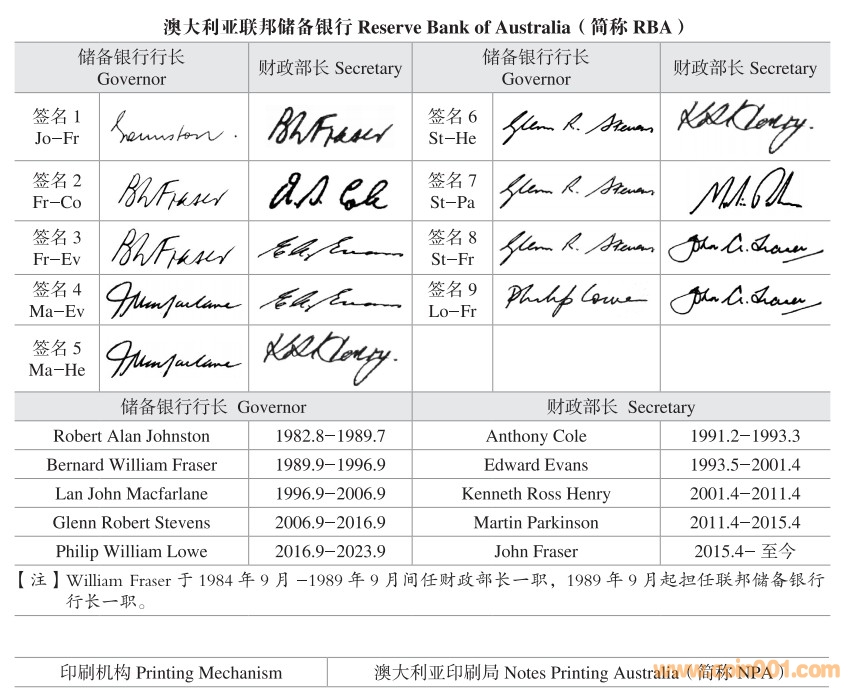 澳大利亚联邦储备银行 Reserve Bank of Australia（简称 RBA）
储备银行行长
Governor
财政部长 Secretary
储备银行行长
Governor
财政部长 Secretary
签名 1
Jo−Fr
Johnston.
BWFraser
签名 6
St−He
Glenn R. Stevens
签名 2
Fr−Co
BWFraser
A. S. Cole
签名 7
St−Pa
Glenn R. Stevens
签名 3
Fr−Ev
BWFraser
签名 8
St−Fr
Glenn R. Stevens
John A. Fraser
签名 4
Ma−Ev
IJMacfarlane
签名 9
Lo−Fr
Philip Lowe
John A. Fraser
签名 5
Ma−He
IJMacfarlane
储备银行行长 Governor
财政部长 Secretary
Robert Alan Johnston
1982.8−1989.7
Anthony Cole
1991.2−1993.3
Bernard William Fraser
1989.9−1996.9
Edward Evans
1993.5−2001.4
Lan John Macfarlane
1996.9−2006.9
Kenneth Ross Henry
2001.4−2011.4
Glenn Robert Stevens
2006.9−2016.9
Martin Parkinson
2011.4−2015.4
Philip William Lowe
2016.9−2023.9
John Fraser
2015.4− 至今
【注】William Fraser 于 1984 年 9 月 −1989 年 9 月间任财政部长一职，1989 年 9 月起担任联邦储备银行
行长一职。
印刷机构 Printing Mechanism
澳大利亚印刷局 Notes Printing Australia（简称 NPA）
www.coin001.com